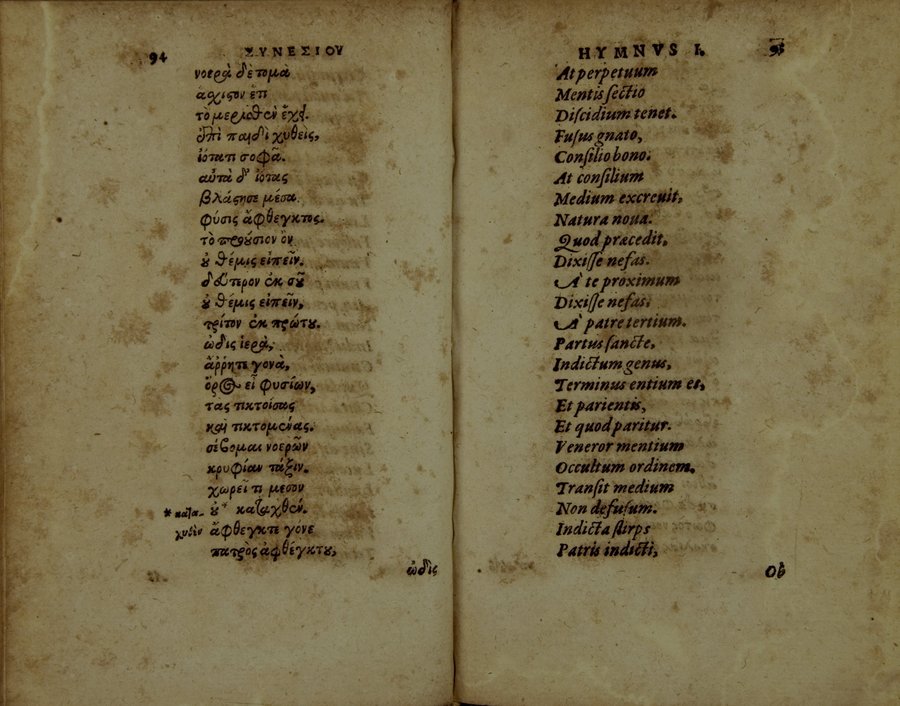 94 ΣΥΝΕΣΙΟΥ
νοερὰ δὲ τομὰ
ἄχιστον ἐπ
τὸ μερισθὲν ἔχει.
ἐπὶ παιδὶ χυθεὶς,
ἰότατι σοφᾶ.
αὐτὰ δ' ἰότας
βλάστησε μέσα.
φύσις ἄφθεγκτος.
τὸ προούσιον ὂν
οὐ θέμις εἰπεῖν.
δεύτερον ἐκ σοῦ
οὐ θέμις εἰπεῖν,
τρίτον ἐκ πρώτου.
ὠδὶς ἱερὰ,
ἄῤῥητε γονὰ,
ὅρος εἶ φυσίων,
τας τικτοίσας
καὶ τικτομένας.
σέβομαι νοερῶν
κρυφίαν τάξιν.
χωρεῖ τι μεσον
οὐ* καταχθέν.
*κατα-
χυθὲν
ἄφθεγκτε γονε
πατρος ἀφθέγκτου,
ὠδὶς
HYMNVS I. 95
At perpetuum
Mentis sectio
Discidium tenet.
Fusus gnato,
Consilio bono.
At consilium
Medium excreuit,
Natura noua.
Quod præcedit,
Dixisse nefas.
A' te proximum
Dixisse nefas.
A' patre tertium.
Partus sancte,
Indictum genus,
Terminus entium es,
Et parientis,
Et quod paritur.
Veneror mentium
Occultum ordinem.
Transit medium
Non defusum.
Indicta stirps
Patris indicti,
Ob